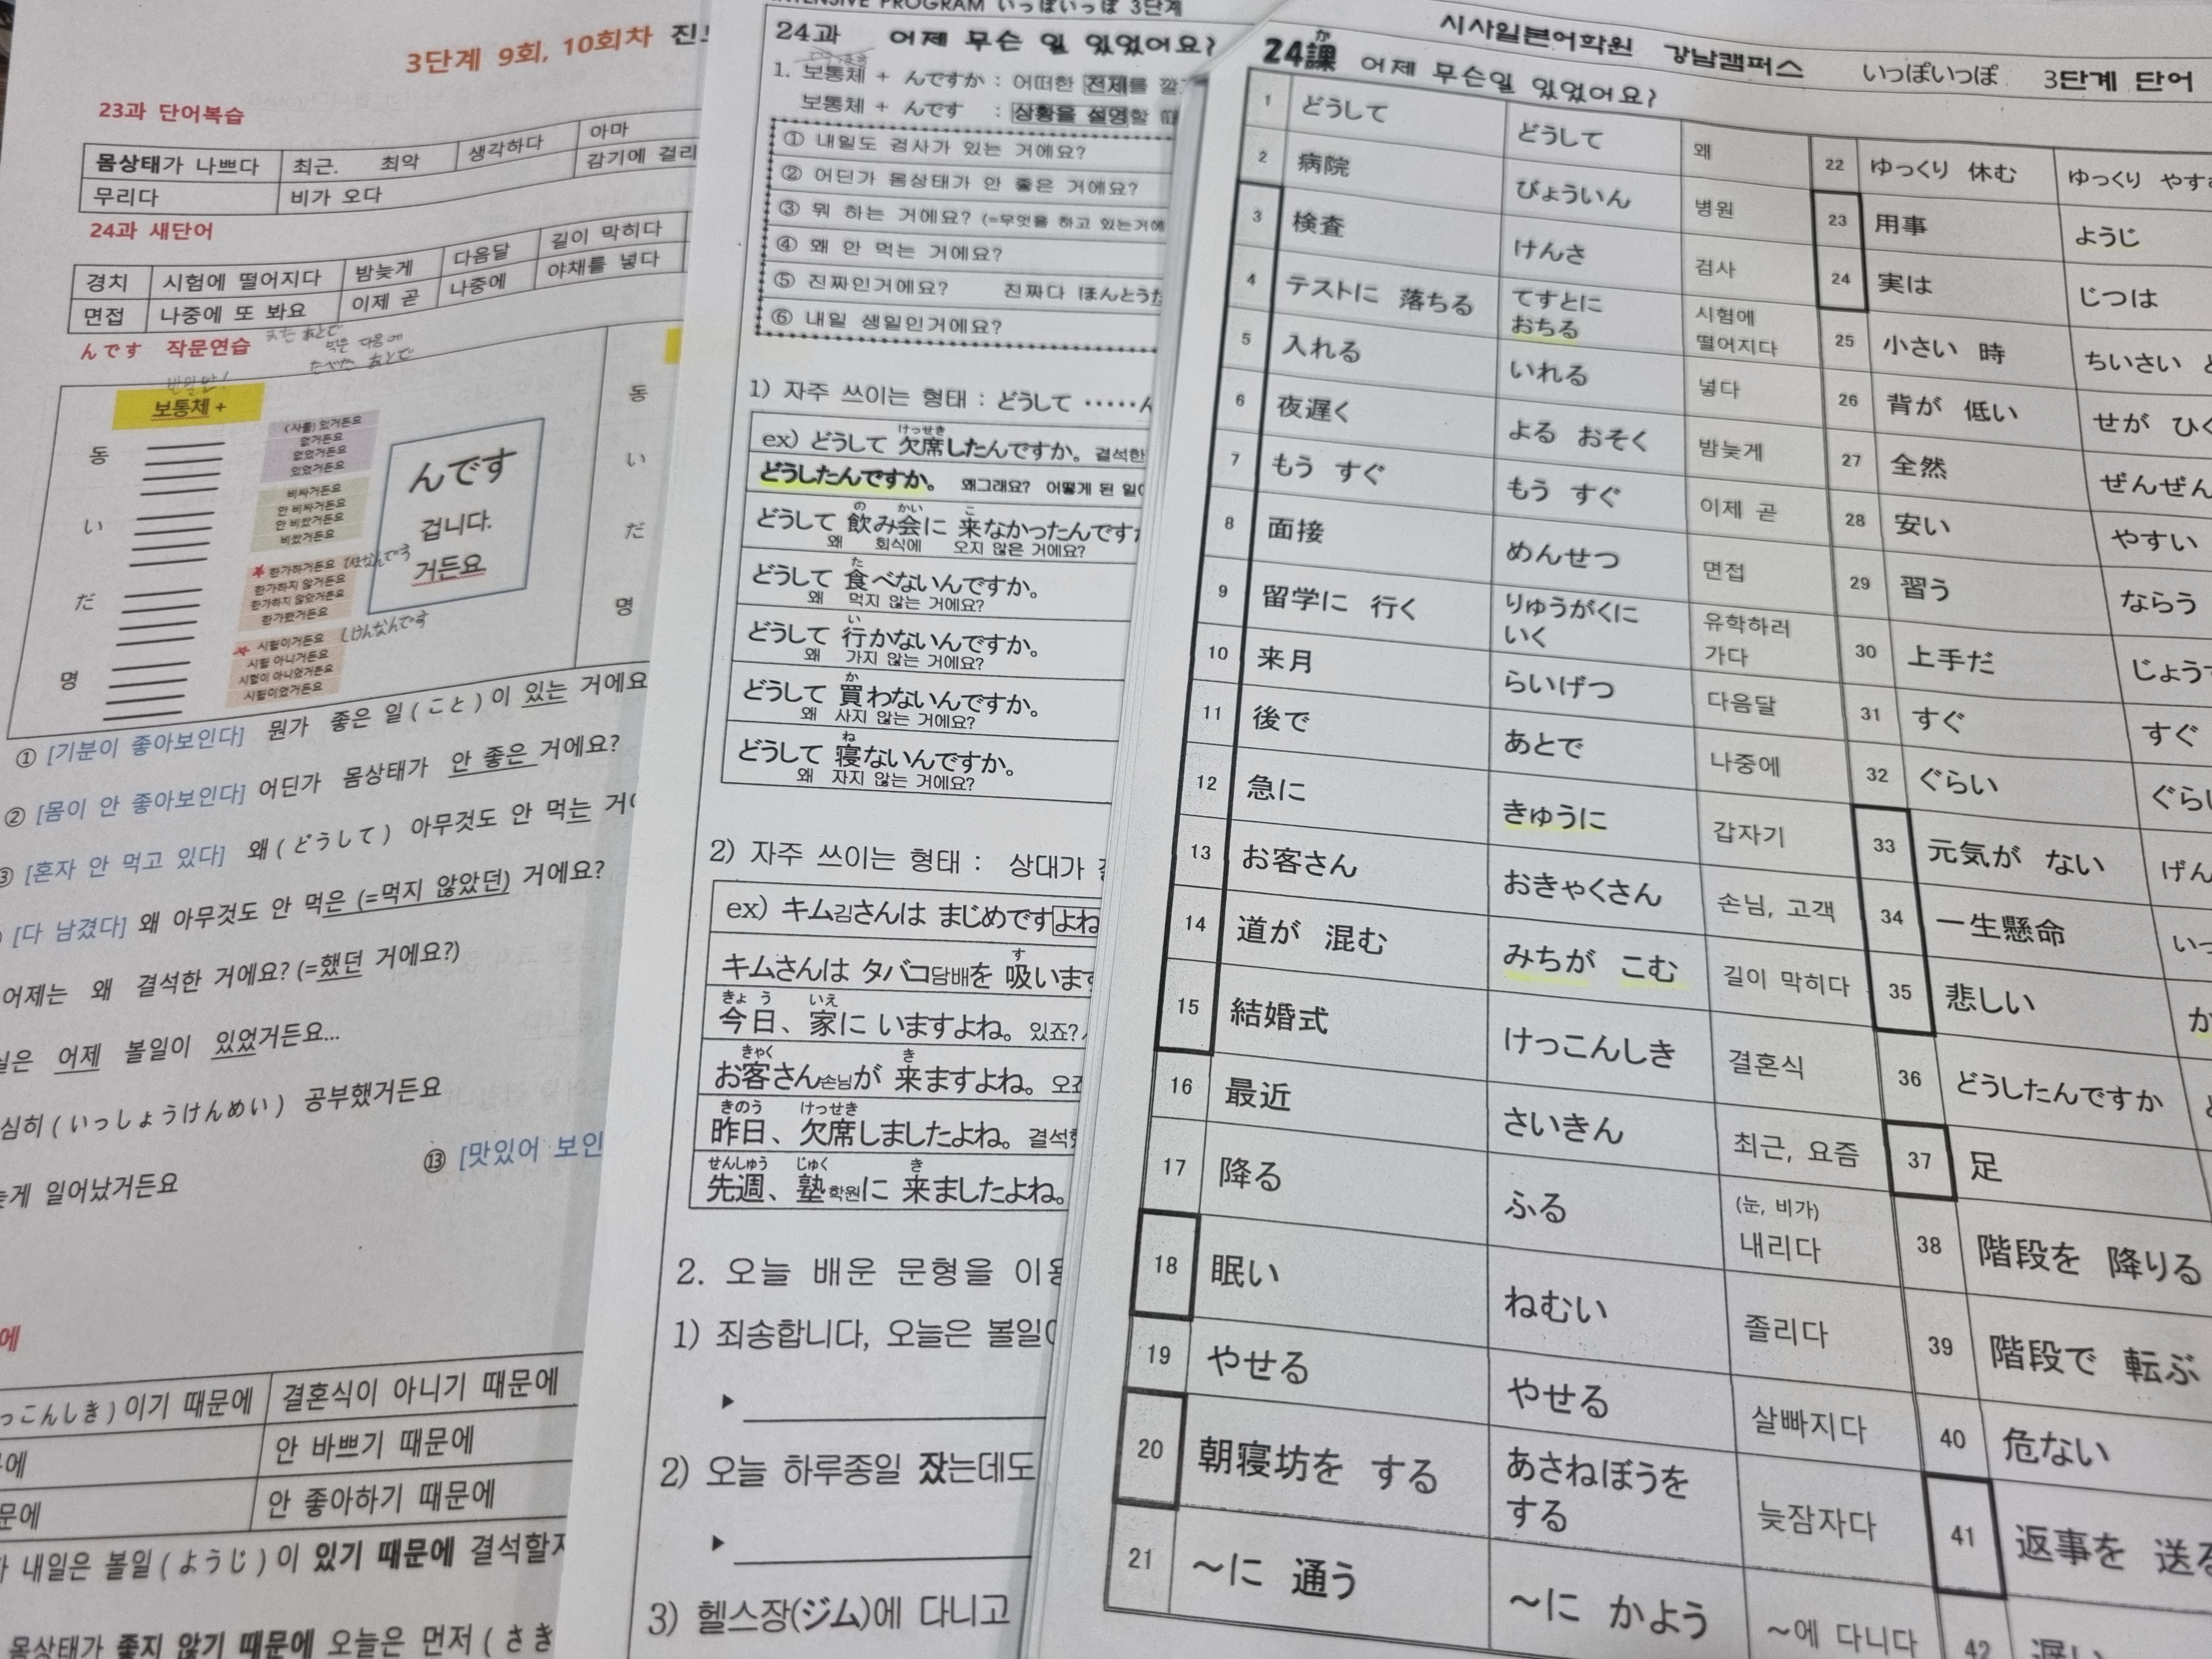 3단계 9회, 10회차
23과 단어복습
몸상태가 나쁘다 최근. 최악 생각하다 아마
무리다 비가 오다 감기에
24과 새단어
경치 시험에 떨어지다 밤늦게 다음달 길이 막히다
면접 나중에 또 봐요 이제 곧 나중에 야채를 넣다
んです 作文연습
また あとで
먹은 다음에
たべた あとで
보통체 +
동
い
だ
명
(사물) 있거든요
없거든요
없었거든요
있었거든요
비싸거든요
안 비싸거든요
안 비쌌거든요
비쌌거든요
한가하거든요 ひまなんです
한가하지 않거든요
한가하지 않았거든요
한가했거든요
시험이거든요 しけんなんです
시험 아니거든요
시험이 아니었거든요
시험이었거든요
んです
겁니다.
거든요
동
い
だ
명
① [기분이 좋아보인다] 뭔가 좋은 일(こと)이 있는 거에요
② [몸이 안 좋아보인다] 어딘가 몸상태가 안 좋은 거에요?
③ [혼자 안 먹고 있다] 왜(どうして) 아무것도 안 먹는
[다 남겼다] 왜 아무것도 안 먹은 (=먹지 않았던) 거에요?
어제는 왜 결석한 거에요? (=했던 거에요?)
어제 볼일이 있었거든요...
심히(いっしょうけんめい) 공부했거든요
일어났거든요
⑬ [맛있어
에
っこんしき)이기 때문에 결혼식이 아니기 때문에
안 바쁘기 때문에
안 좋아하기 때문에
내일은 볼일(ようじ)이 있기 때문에
몸상태가 좋지 않기 때문에 오늘은 먼저(さき
INTENSIVE PROGRAM いっぽいっぽ 3단계
24과 어제 무슨 일 있었어요?
1. 보통체 + んですか : 어떠한 전제를
보통체 + んです : 상황을 설명할
① 내일도 검사가 있는 거에요?
② 어딘가 몸상태가 안 좋은 거에요?
③ 뭐 하는 거에요? (=무엇을 하고 있는거에
④ 왜 안 먹는 거에요?
⑤ 진짜인거에요? 진짜다 ほんとうだ
⑥ 내일 생일인거에요?
1) 자주 쓰이는 형태 : どうして ・・・・・
ex) どうして 欠席したんですか。 결석한
けっせき
どうしたんですか。 왜그래요? 어떻게 된
どうして 飲み会に 来なかったんです
の かい こ
왜 회식에 오지 않은 거에요?
どうして 食べないんですか。
た
왜 먹지 않는 거에요?
どうして 行かないんですか。
い
왜 가지 않는 거에요?
どうして 買わないんですか。
か
왜 사지 않는 거에요?
どうして 寝ないんですか。
ね
왜 자지 않는 거에요?
2) 자주 쓰이는 형태 : 상대가
ex) キム김さんは まじめですよね
キムさんは タバコ담배を 吸います
す
きょう いえ
今日、家に いますよね。 있죠?
きゃく き
お客さん손님が 来ますよね。
きのう けっせき
昨日、欠席しましたよね。
せんしゅう じゅく き
先週、塾학원に 来ましたよね。
2. 오늘 배운 문형을
1) 죄송합니다, 오늘은
▶
2) 오늘 하루종일 잤는데도
▶
3) 헬스장(ジム)에 다니고
시사일본어학원 강남캠퍼스 いっぽいっぽ 3단계 단어
か
24課 어제 무슨일 있었어요?
1 どうして どうして 왜
2 病院 びょういん 병원
3 検査 けんさ 검사
4 テストに 落ちる てすとに おちる 시험에 떨어지다
5 入れる いれる 넣다
6 夜遅く よる おそく 밤늦게
7 もう すぐ もう すぐ 이제 곧
8 面接 めんせつ 면접
9 留学に 行く りゅうがくに いく 유학하러 가다
10 来月 らいげつ 다음달
11 後で あとで 나중에
12 急に きゅうに 갑자기
13 お客さん おきゃくさん 손님, 고객
14 道が 混む みちが こむ 길이 막히다
15 結婚式 けっこんしき 결혼식
16 最近 さいきん 최근, 요즘
17 降る ふる (눈, 비가) 내리다
18 眠い ねむい 졸리다
19 やせる やせる 살빠지다
20 朝寝坊を する あさねぼうを する 늦잠자다
21 ～に 通う ～に かよう ～에 다니다
22 ゆっくり 休む ゆっくり やす
23 用事 ようじ
24 実は じつは
25 小さい 時 ちいさい
26 背が 低い せが ひく
27 全然 ぜんぜん
28 安い やすい
29 習う ならう
30 上手だ じょうず
31 すぐ すぐ
32 ぐらい ぐらい
33 元気が ない げん
34 一生懸命 いっ
35 悲しい か
36 どうしたんですか
37 足
38 階段を 降りる
39 階段で 転ぶ
40 危ない
41 返事を 送る
42 遅い